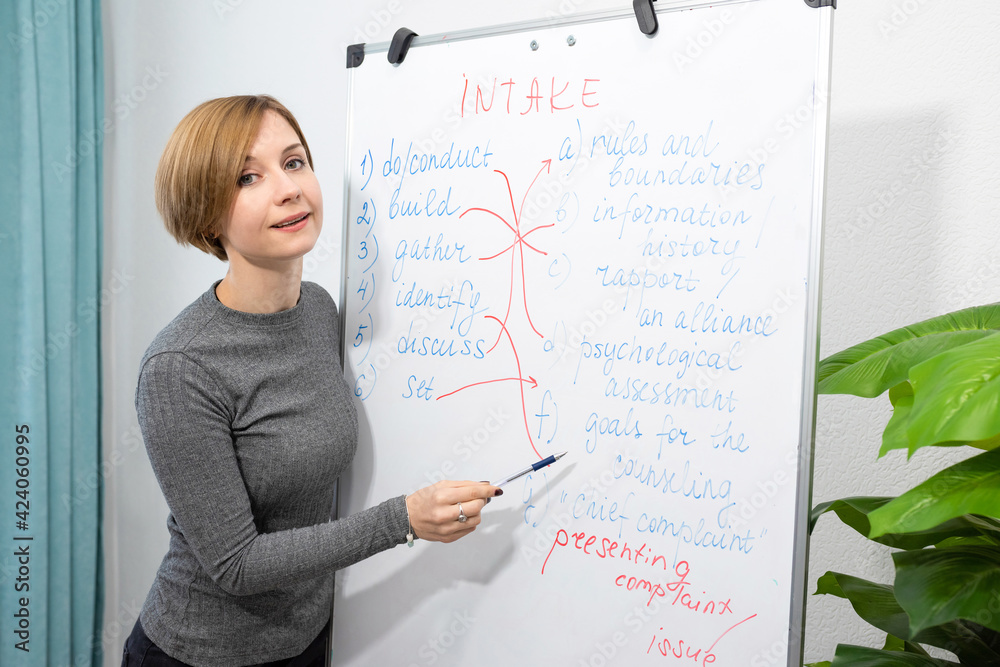 INTAKE
1) do/conduct
2) build
3) gather
4) identify
5) discuss
6) set
a) rules and
boundaries
b) information/
history
c) rapport/
an alliance
d) psychological
assessment
f) goals for the
counseling
g) "chief complaint"
presenting
complaint
issue
Adobe Stock | #424060995